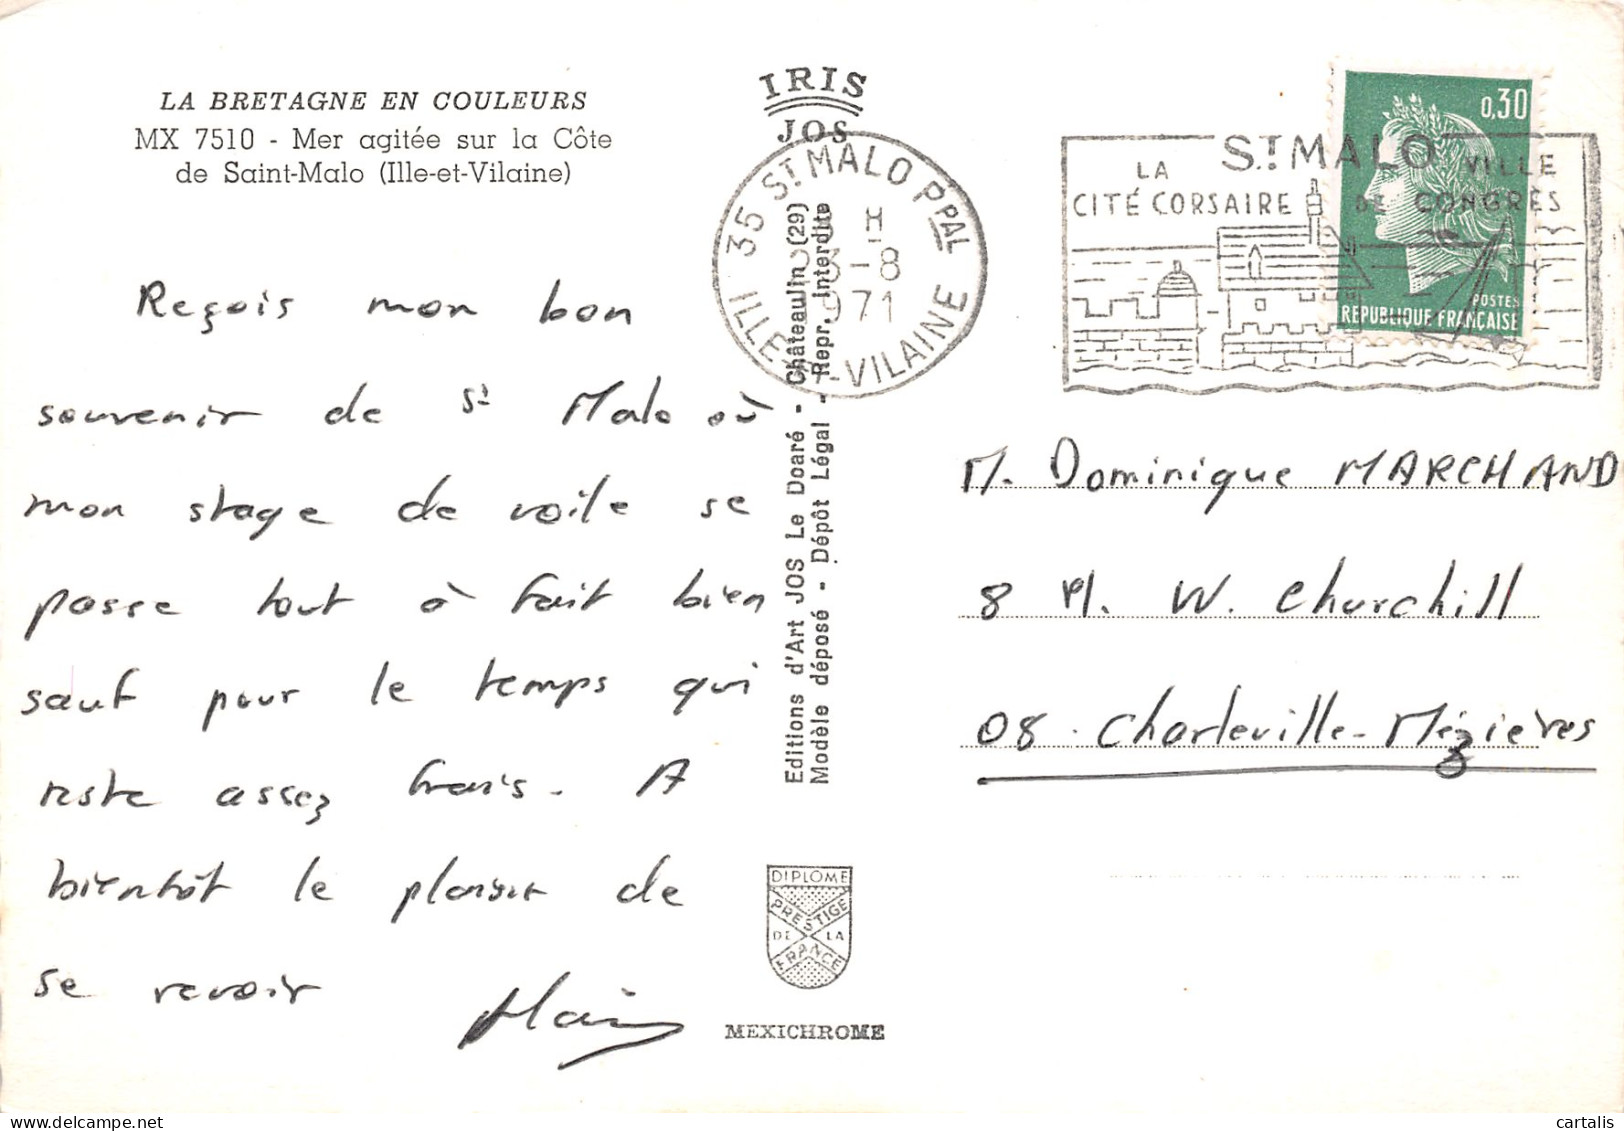 LA BRETAGNE EN COULEURS
MX 7510 - Mer agitée sur la Côte
de Saint-Malo (Ille-et-Vilaine)
Reçois mon bon
souvenir de St Malo où
mon stage de voile se
passe tout à fait bien
sauf pour le temps qui
reste assez frais. A
bientôt le plaisir de
se revoir
Alain
IRIS
JOS
Editions d'Art JOS Le Doaré - Châteaulin (29)
Modèle déposé - Dépôt Légal - Repr. Interdite
35 ST MALO PPAL
H
3-8
971
ILLE-ET-VILAINE
ST MALO
LA
CITÉ CORSAIRE
VILLE
DE CONGRÈS
0,30
POSTES
REPUBLIQUE FRANÇAISE
M. Dominique MARCHAND
8 Pl. W. Churchill
08. Charleville-Mézières
DIPLOME
PRESTIGE
DE LA
FRANCE
MEXICHROME
cartalis